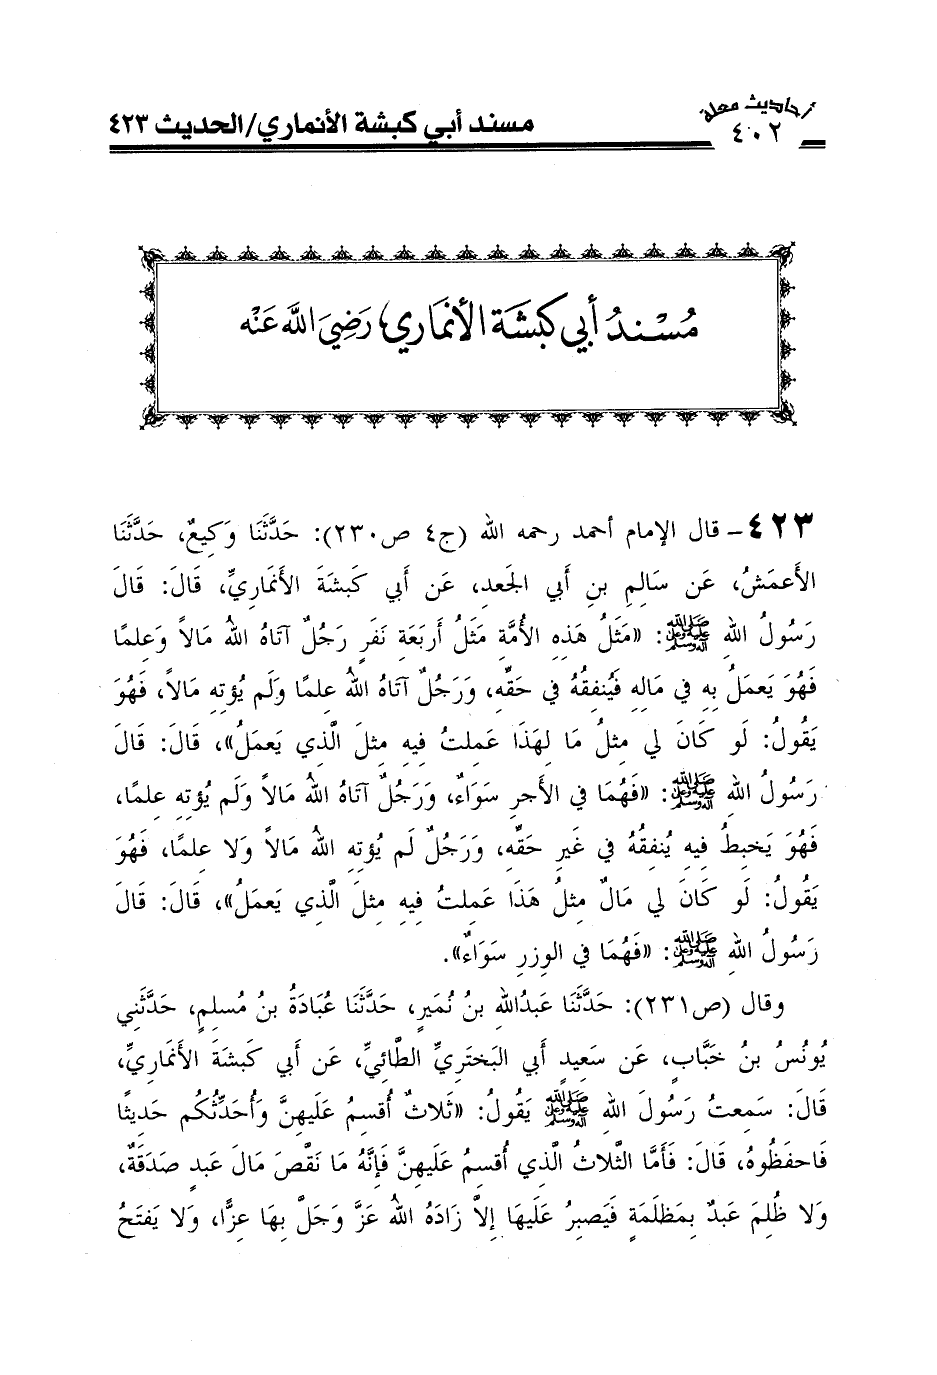 أحاديث معلة
٤٠٢
مسند أبي كبشة الأنماري/الحديث ٤٢٣
مُسْنَدُ أَبِي كَبْشَةَ الأَنْمَارِيِّ رَضِيَ اللَّه عَنْه
٤٢٣- قال الإمام أحمد رحمه الله (ج٤ ص٢٣٠): حَدَّثَنَا وَكِيعٌ، حَدَّثَنَا
الأَعمَشُ، عَن سَالِمِ بنِ أَبي الجَعدِ، عَن أَبي كَبشَةَ الأَنمَاريِّ، قَالَ: قَالَ
رَسُولُ اللهِ ﷺ: «مَثَلُ هَذِهِ الأُمَّةِ مَثَلُ أَربَعَةِ نَفَرٍ رَجُلٌ آتَاهُ اللهُ مَالاً وَعِلمًا
فَهُوَ يَعمَلُ بِهِ في مَالِهِ فَيُنفِقُهُ في حَقِّهِ، وَرَجُلٌ آتَاهُ اللهُ عِلمًا وَلَم يُؤتِهِ مَالاً، فَهُوَ
يَقُولُ: لَو كَانَ لي مِثلُ مَا لِهَذَا عَمِلتُ فِيهِ مِثلَ الَّذي يَعمَلُ»، قَالَ: قَالَ
رَسُولُ اللهِ ﷺ: «فَهُمَا في الأَجرِ سَوَاءٌ، وَرَجُلٌ آتَاهُ اللهُ مَالاً وَلَم يُؤتِهِ عِلمًا،
فَهُوَ يَخبِطُ فِيهِ يُنفِقُهُ في غَيرِ حَقِّهِ، وَرَجُلٌ لَم يُؤتِهِ اللهُ مَالاً وَلا عِلمًا، فَهُوَ
يَقُولُ: لَو كَانَ لي مَالٌ مِثلُ هَذَا عَمِلتُ فِيهِ مِثلَ الَّذي يَعمَلُ»، قَالَ: قَالَ
رَسُولُ اللهِ ﷺ: «فَهُمَا في الوِزرِ سَوَاءٌ».
وقال (ص٢٣١): حَدَّثَنَا عَبدُاللهِ بنُ نُمَيرٍ، حَدَّثَنَا عُبَادَةُ بنُ مُسلِمٍ، حَدَّثَنِي
يُونُسُ بنُ خَبَّابٍ، عَن سَعِيدٍ أَبي البَختَريِّ الطَّائِيِّ، عَن أَبي كَبشَةَ الأَنمَاريِّ،
قَالَ: سَمِعتُ رَسُولَ اللهِ ﷺ يَقُولُ: «ثَلاثٌ أُقسِمُ عَلَيهِنَّ وَأُحَدِّثُكُم حَدِيثًا
فَاحفَظُوهُ، قَالَ: فَأَمَّا الثَّلاثُ الَّذي أُقسِمُ عَلَيهِنَّ فَإِنَّهُ مَا نَقَّصَ مَالَ عَبدٍ صَدَقَةٌ،
وَلا ظُلِمَ عَبدٌ بِمَظلَمَةٍ فَيَصبِرُ عَلَيهَا إِلاَّ زَادَهُ اللهُ عَزَّ وَجَلَّ بِهَا عِزًّا، وَلا يَفتَحُ